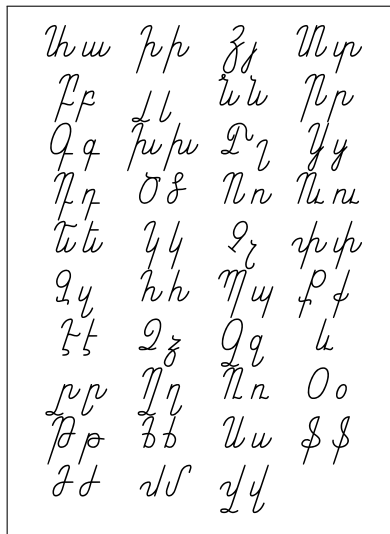 Ա ա Ի ի Յ յ Տ տ
Բ բ Լ լ Ն ն Ր ր
Գ գ Խ խ Շ շ Ց ց
Դ դ Ծ ծ Ո ո Ու ու
Ե ե Կ կ Չ չ Փ փ
Զ զ Հ հ Պ պ Ք ք
Է է Ձ ձ Ջ ջ և
Ը ը Ղ ղ Ռ ռ Օ օ
Թ թ Ճ ճ Ս ս Ֆ ֆ
Ժ ժ Մ մ Վ վ